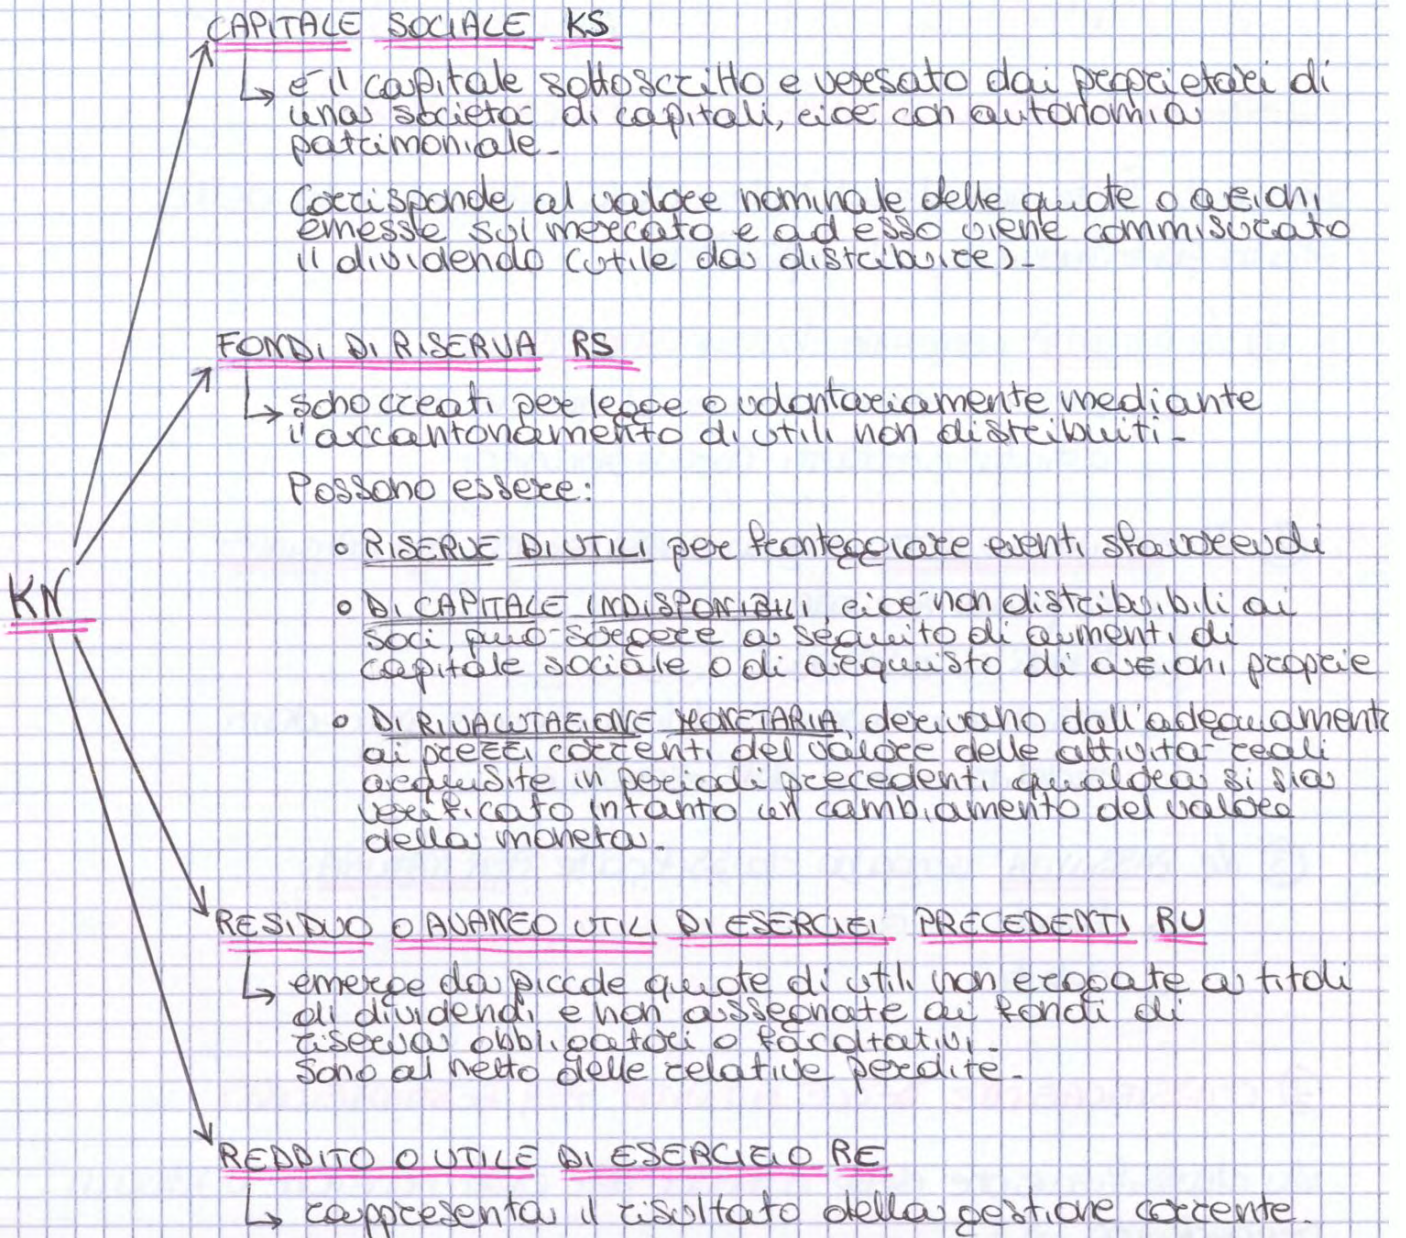 CAPITALE SOCIALE KS
↳ è il capitale sottoscritto e versato dai proprietari di
una società di capitali, cioè con autonomia
patrimoniale.
Corrisponde al valore nominale delle quote o azioni
emesse sul mercato e ad esso viene commisurato
il dividendo (utile da distribuire).
FONDI DI RISERVA RS
↳ sono creati per legge o volontariamente mediante
l'accantonamento di utili non distribuiti.
Possono essere:
• RISERVE DI UTILI per fronteggiare eventi sfavorevoli
KN
• DI CAPITALE INDISPONIBILI, cioè non distribuibili ai
soci, può sorgere a seguito di aumenti di
capitale sociale o di acquisto di azioni proprie
• DI RIVALUTAZIONE MONETARIA, derivano dall'adeguamento
ai prezzi correnti del valore delle attività reali
acquisite in periodi precedenti qualora si sia
verificato intanto un cambiamento del valore
della moneta.
RESIDUO O AVANZO UTILI DI ESERCIZI PRECEDENTI RU
↳ emerge da piccole quote di utili non erogate a titoli
di dividendi e non assegnate ai fondi di
riserva obbligatori o facoltativi.
Sono al netto delle relative perdite.
REDDITO O UTILE DI ESERCIZIO RE
↳ rappresenta il risultato della gestione corrente.